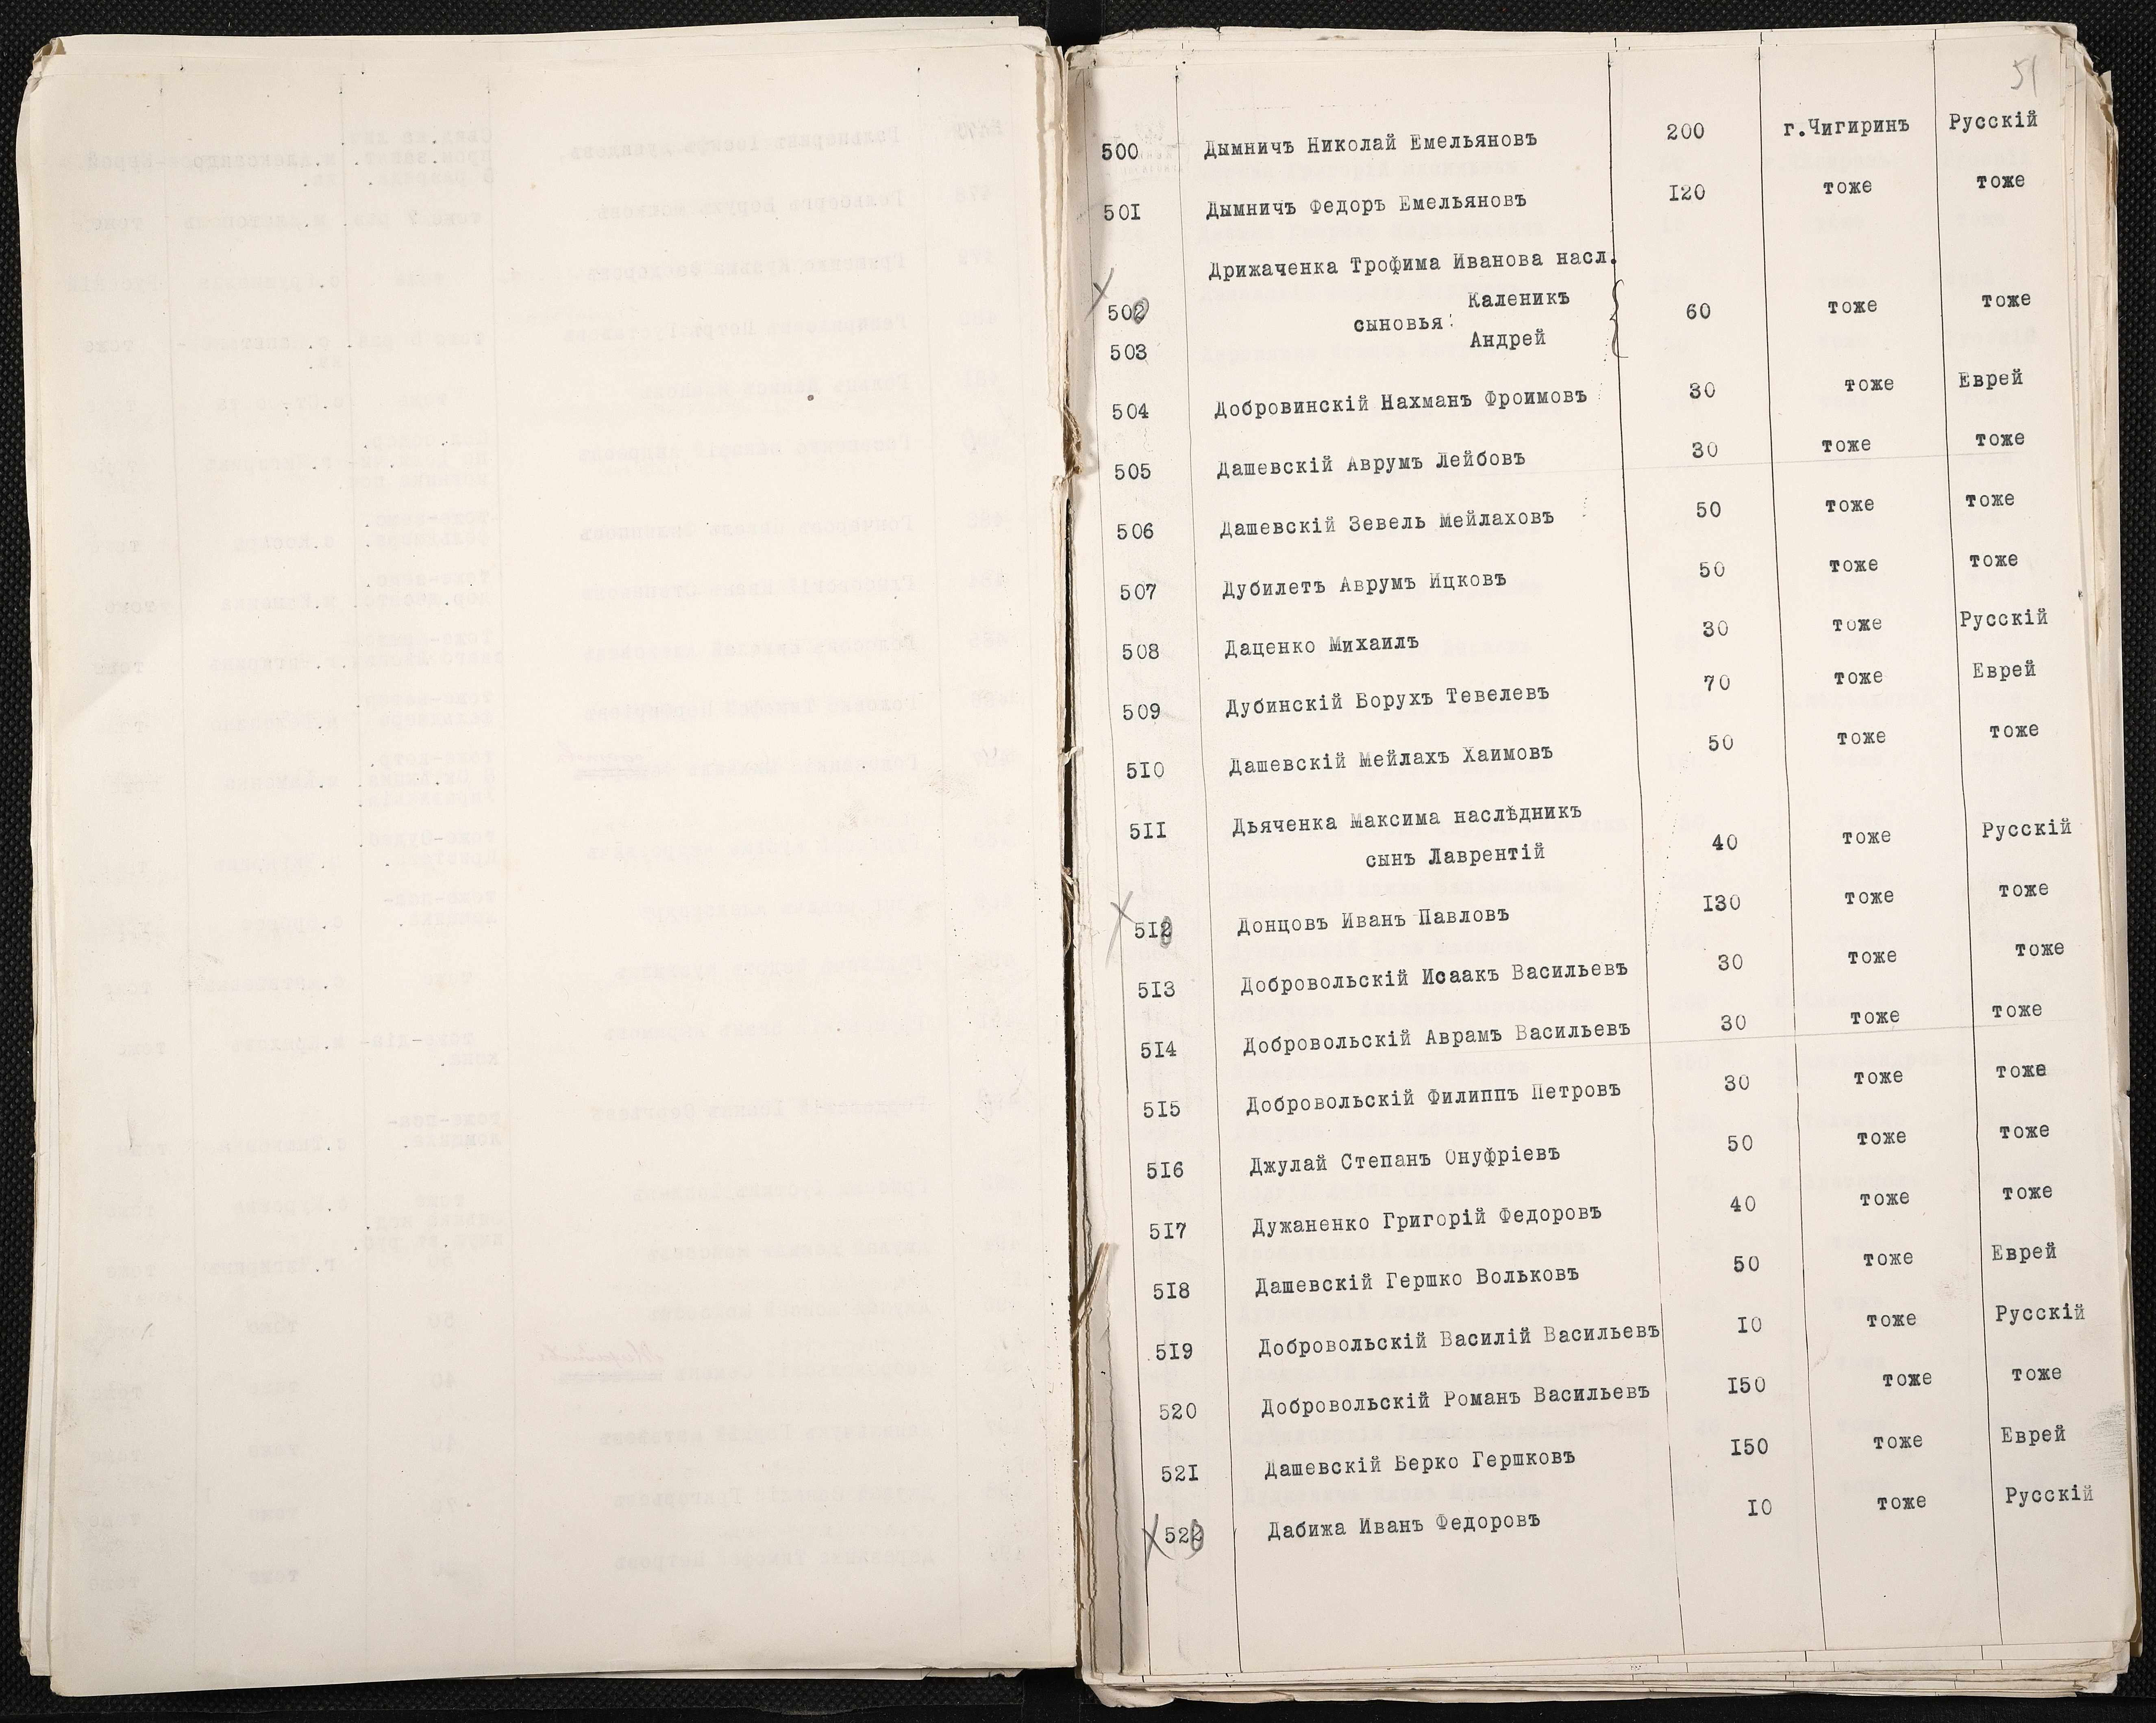 51
500 Дымничъ Николай Емельяновъ 200 г.Чигиринъ Русскій
50I Дымничъ Федоръ Емельяновъ I20 тоже тоже
Дрижаченка Трофима Иванова насл.
Каленикъ
502 сыновья: 60 тоже тоже
503 Андрей
504 Добровинскій Нахманъ Фроимовъ 30 тоже Еврей
505 Дашевскій Аврумъ Лейбовъ 30 тоже тоже
506 Дашевскій Зевель Мейлаховъ 50 тоже тоже
507 Дубилетъ Аврумъ Ицковъ 50 тоже тоже
508 Даценко Михаилъ 30 тоже Русскій
509 Дубинскій Борухъ Тевелевъ 70 тоже Еврей
5I0 Дашевскій Мейлахъ Хаимовъ 50 тоже тоже
5II Дьяченка Максима наслѣдникъ
сынъ Лаврентій 40 тоже Русскій
5I2 Донцовъ Иванъ Павловъ I30 тоже тоже
5I3 Добровольскій Исаакъ Васильевъ 30 тоже тоже
5I4 Добровольскій Аврамъ Васильевъ 30 тоже тоже
5I5 Добровольскій Филиппъ Петровъ 30 тоже тоже
5I6 Джулай Степанъ Онуфріевъ 50 тоже тоже
5I7 Дужаненко Григорій Федоровъ 40 тоже тоже
5I8 Дашевскій Гершко Вольковъ 50 тоже Еврей
5I9 Добровольскій Василій Васильевъ I0 тоже Русскій
520 Добровольскій Романъ Васильевъ I50 тоже тоже
52I Дашевскій Берко Гершковъ I50 тоже Еврей
522 Дабижа Иванъ Федоровъ I0 тоже Русскій